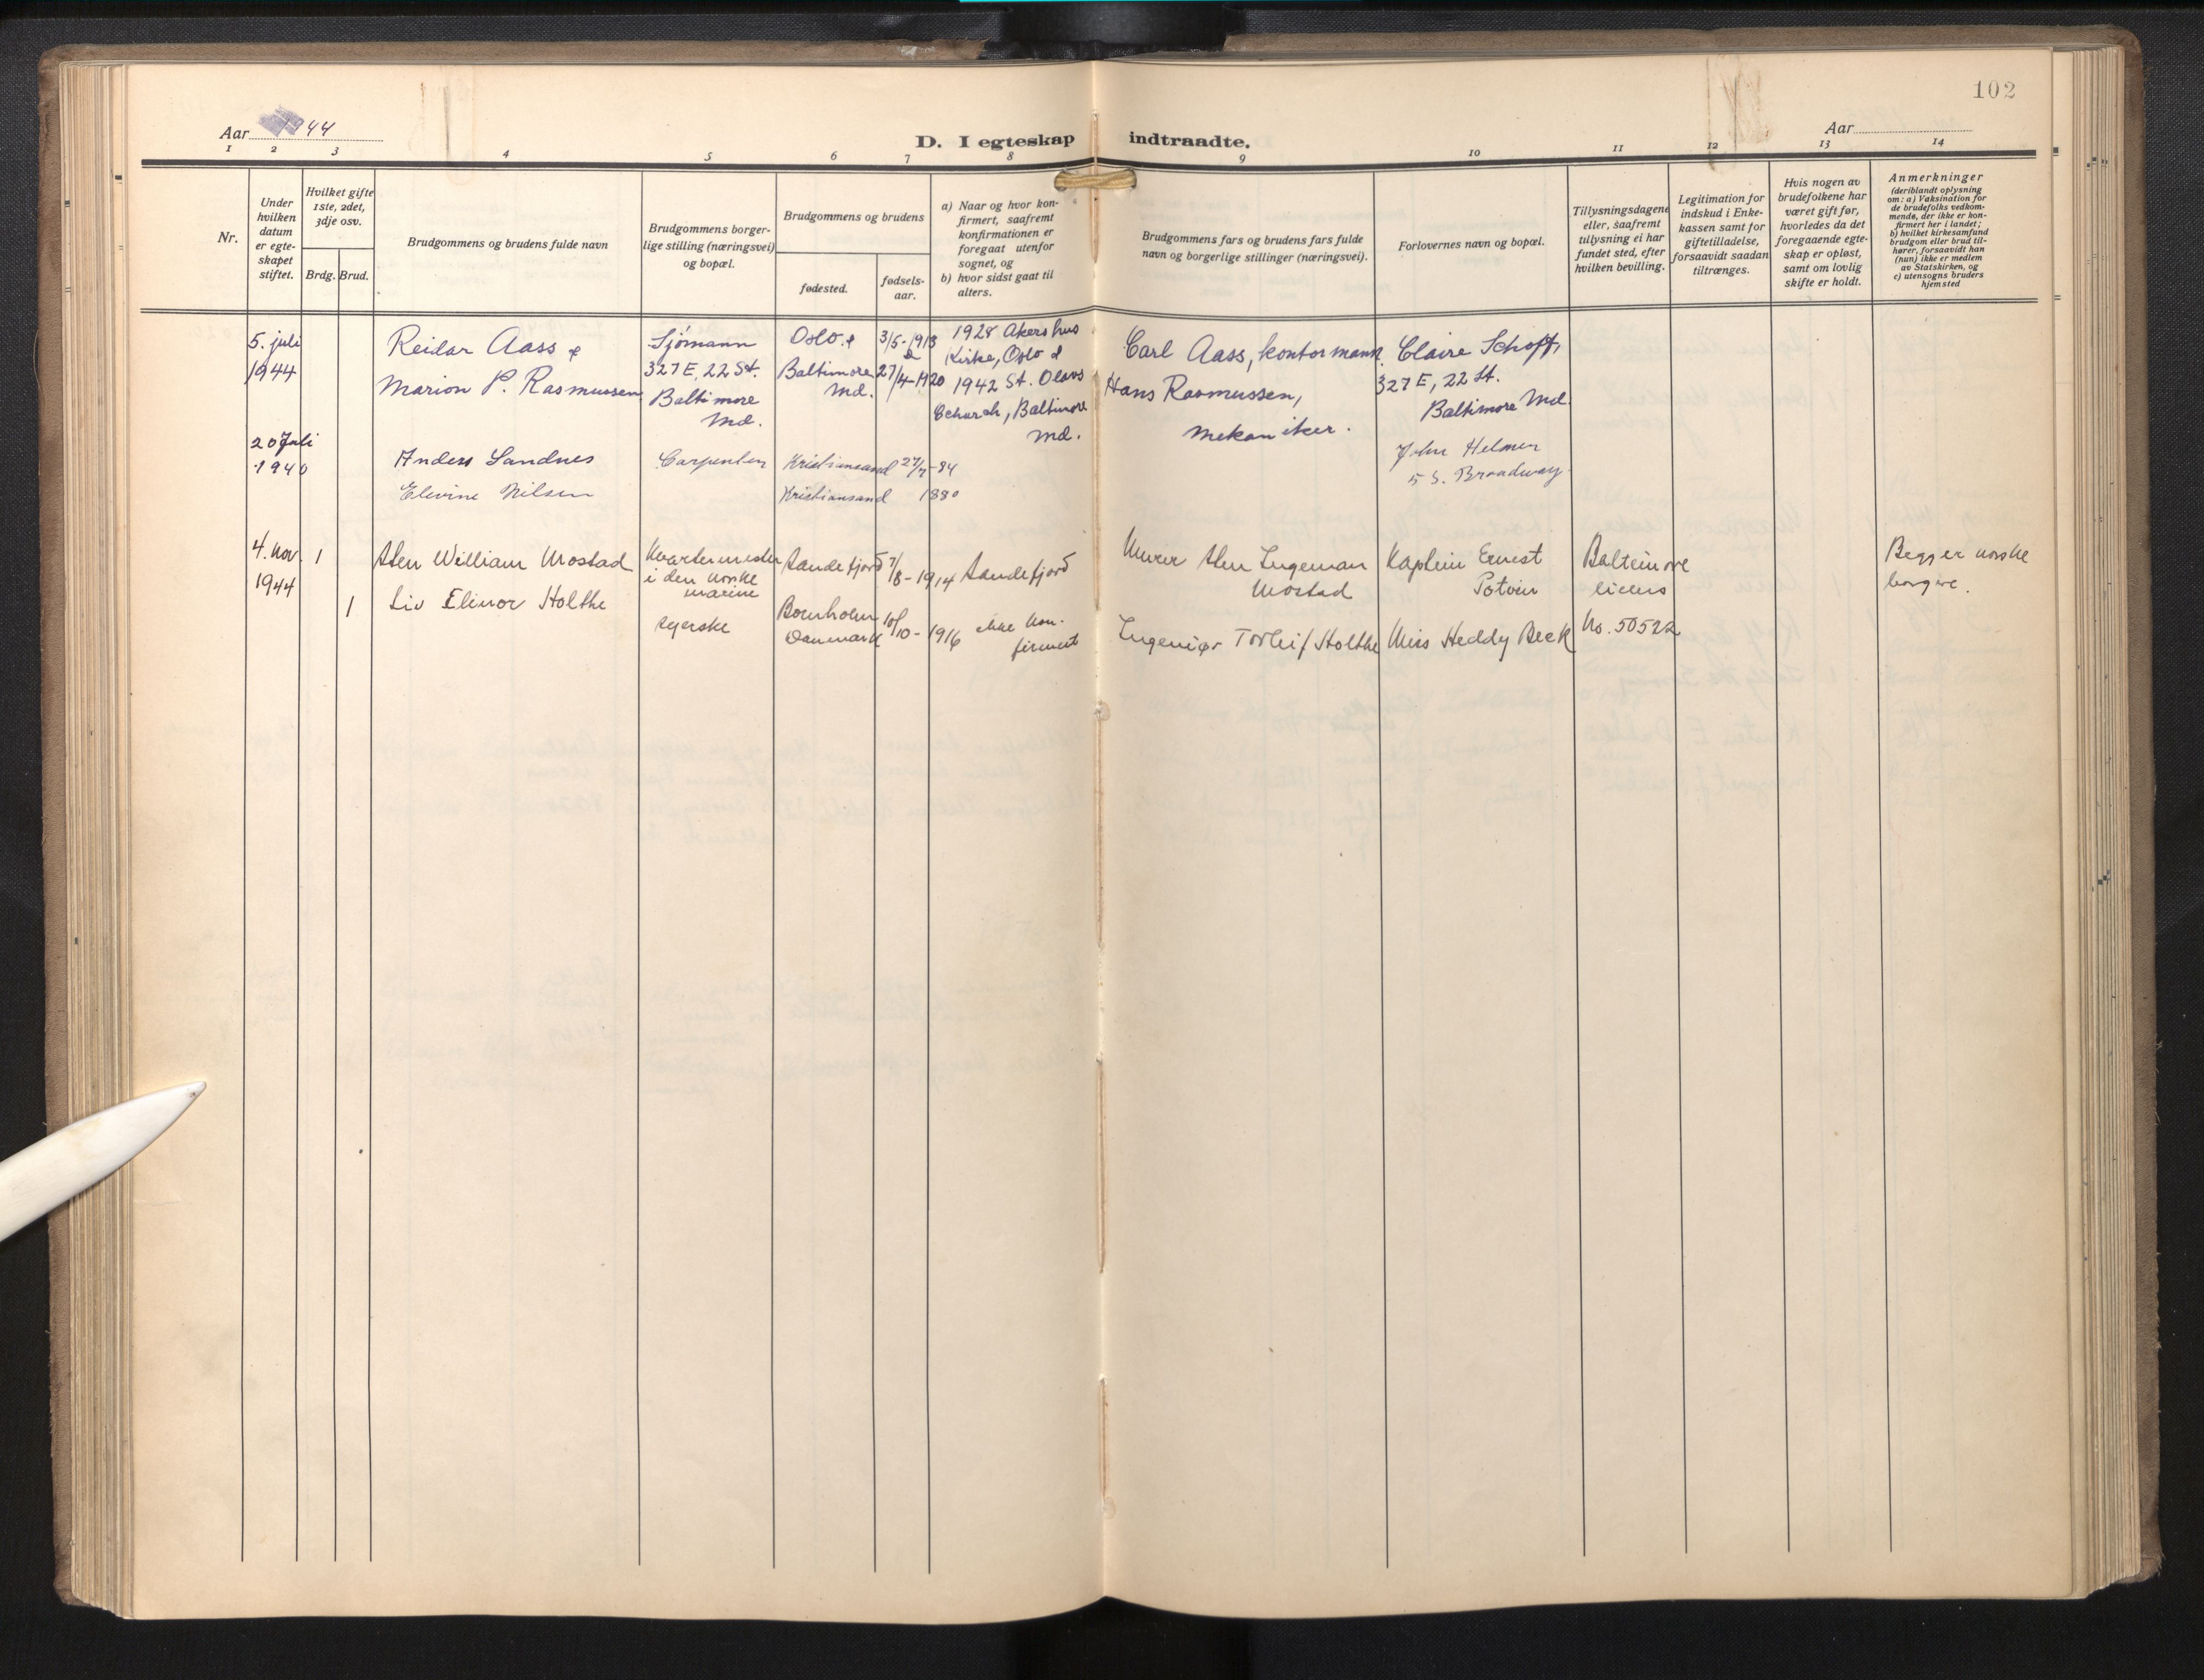 102
Aar 1944
D. I egteskap indtraadte.
Aar
1 2 3 4 5 6 7 8 9 10 11 12 13 14
Nr.
Under
hvilken
datum
er egte-
skapet
stiftet.
Hvilket gifte
1ste, 2det,
3dje osv.
Brdg. Brud.
Brudgommens og brudens fulde navn
Brudgommens borger-
lige stilling (næringsvei)
og bopæl.
Brudgommens og brudens
fødested.
fødsels-
aar.
a) Naar og hvor kon-
firmert, saafremt
konfirmationen er
foregaat utenfor
sognet, og
b) hvor sidst gaat til
alters.
Brudgommens fars og brudens fars fulde
navn og borgerlige stillinger (næringsvei).
Forlovernes navn og bopæl.
Tillysningsdagene
eller, saafremt
tillysning ei har
fundet sted, efter
hvilken bevilling.
Legitimation for
indskud i Enke-
kassen samt for
giftetilladelse,
forsaavidt saadan
tiltrænges.
Hvis nogen av
brudefolkene har
været gift før,
hvorledes da det
foregaaende egte-
skap er opløst,
samt om lovlig
skifte er holdt.
Anmerkninger
(deriblandt oplysning
om: a) Vaksination for
de brudefolks vedkom-
mende, der ikke er kon-
firmert her i landet;
b) hvilket kirkesamfund
brudgom eller brud til-
hører, forsaavidt han
(hun) ikke er medlem
av Statskirken, og
c) utensogns bruders
hjemsted
5. juli
1944
Reidar Aass &
Marion P. Rasmussen
Sjömann
327 E, 22 St.
Baltimore
Md.
Oslo &
Baltimore
Md.
3/5-1913
&
27/4-1920
1928 Akershus
Kirke, Oslo &
1942 St. Olavs
Church, Baltimore
Md.
Carl Aass, kontormann
Hans Rasmussen,
Mekaniker.
Claire Schoff,
327 E, 22 St.
Baltimore Md.
20 Juli
1940
Anders Sandnes
Elevine Nilsen
Carpenter
Kristiansand
Kristiansand
27/7-84
1880
John Helmer
5 S. Broadway.
4. nov.
1944
1
1
Sten William Mostad
Liv Elinor Holthe
Kvartermester
i den norske
marine
syerske
Sandefjord
Bornholm
Danmark
7/8-1914
10/10-1916
Sandefjord
ikke kon-
firmert
Murer Sten Ingeman
Mostad
Ingeniør Torleif Holthe
Kaptein Ernest
Potvin
Miss Heddy Beck
Balteimore
licens
No. 50522
Begge er norske
borgere.